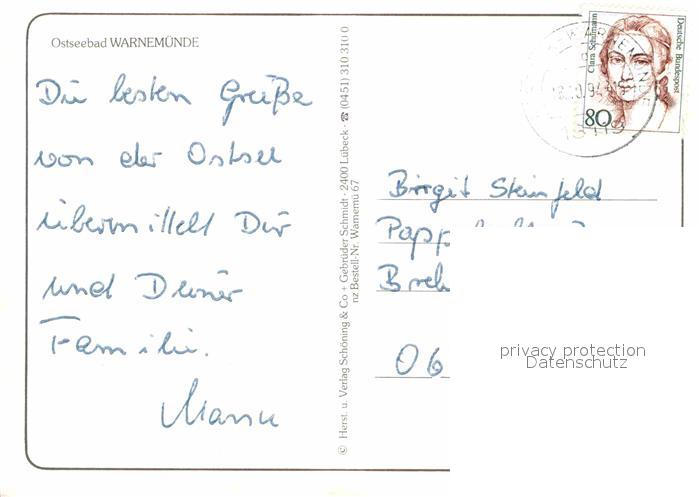 Ostseebad WARNEMÜNDE
Die besten Grüße
von der Ostsee
übermittelt Dir
und Deiner
Familie.
© Herst. u. Verlag Schöning & Co + Gebrüder Schmidt · 2400 Lübeck · ☎ (0451) 310 310 0
nz Bestell-Nr. Warnemü 67
Clara Schumann
Deutsche Bundespost
80
WARNEMÜNDE
Birgit Steinfeld
Papp
Breh
06
privacy protection
Datenschutz